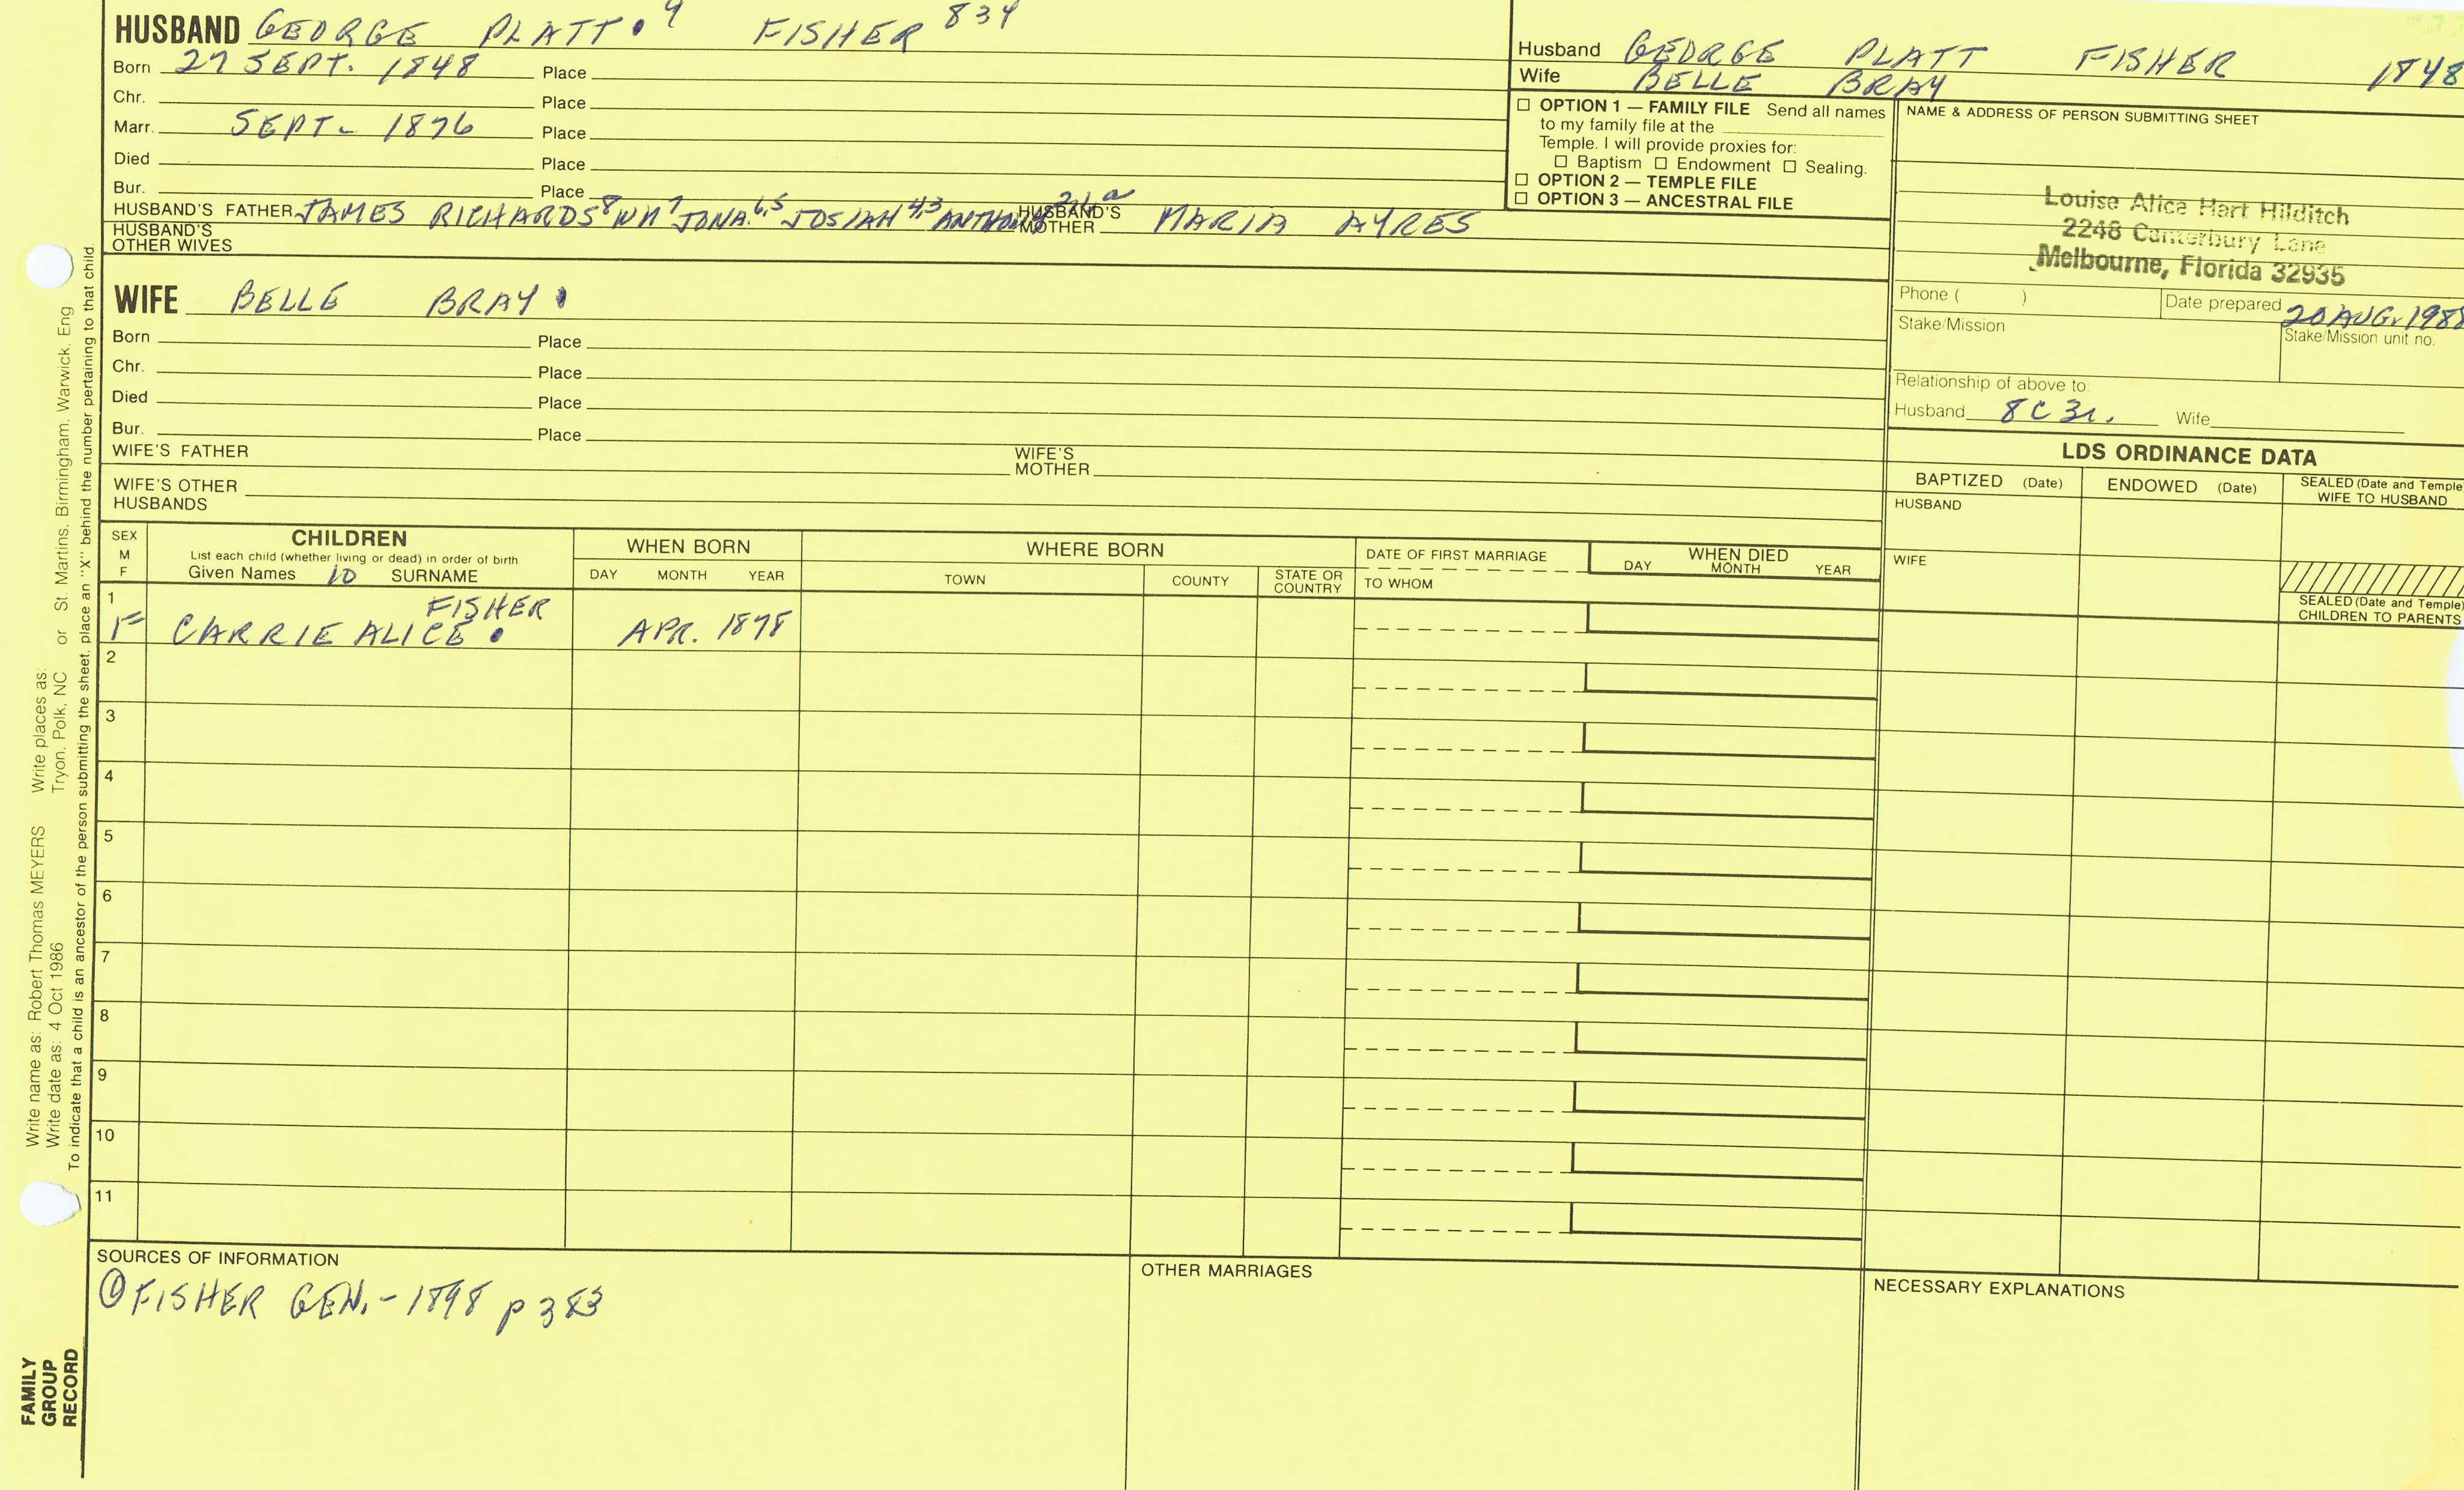 HUSBAND GEORGE PLATT. 9 FISHER 834
Born 27 SEPT. 1848 Place
Chr. Place
Marr. SEPT- 1876 Place
Died Place
Bur. Place
HUSBAND'S FATHER JAMES RICHARDS 8 WM 7 JONA. 6,5 JOSIAH 4,3 ANTHONY HUSBAND'S MOTHER MARIA AYRES
HUSBAND'S OTHER WIVES
Husband GEORGE PLATT FISHER 1848
Wife BELLE BRAY
☐ OPTION 1 — FAMILY FILE Send all names
to my family file at the
Temple. I will provide proxies for:
☐ Baptism ☐ Endowment ☐ Sealing.
☐ OPTION 2 — TEMPLE FILE
☐ OPTION 3 — ANCESTRAL FILE
NAME & ADDRESS OF PERSON SUBMITTING SHEET
Louise Alice Hart Hilditch
2248 Canterbury Lane
Melbourne, Florida 32935
Phone ( ) Date prepared 20 AUG. 1988
Stake/Mission Stake/Mission unit no.
Relationship of above to:
Husband 8C3r. Wife
WIFE BELLE BRAY
Born Place
Chr. Place
Died Place
Bur. Place
WIFE'S FATHER WIFE'S MOTHER
WIFE'S OTHER HUSBANDS
LDS ORDINANCE DATA
BAPTIZED (Date) ENDOWED (Date) SEALED (Date and Temple) WIFE TO HUSBAND
HUSBAND
WIFE
SEALED (Date and Temple) CHILDREN TO PARENTS
SEX M F
CHILDREN
List each child (whether living or dead) in order of birth
Given Names 10 SURNAME
WHEN BORN
DAY MONTH YEAR
WHERE BORN
TOWN COUNTY STATE OR COUNTRY
DATE OF FIRST MARRIAGE
TO WHOM
WHEN DIED
DAY MONTH YEAR
1
FISHER
F CARRIE ALICE. APR. 1878
2
3
4
5
6
7
8
9
10
11
SOURCES OF INFORMATION
① FISHER GEN. - 1898 p 383
OTHER MARRIAGES
NECESSARY EXPLANATIONS
Write name as: Robert Thomas MEYERS Write places as:
Write date as: 4 Oct 1986 Tryon, Polk, NC or St. Martins, Birmingham, Warwick, Eng
To indicate that a child is an ancestor of the person submitting the sheet, place an "X" behind the number pertaining to that child.
FAMILY
GROUP
RECORD